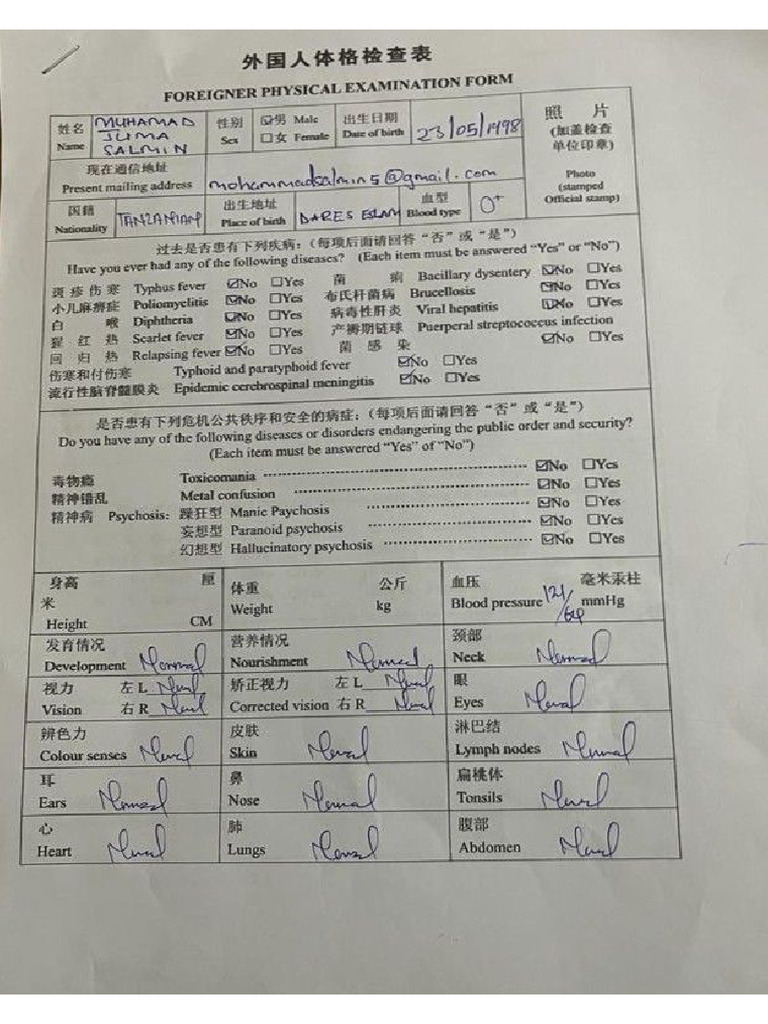 外国人体格检查表
FOREIGNER PHYSICAL EXAMINATION FORM
姓名 Name MUHAMAD JUMA SALMIN 性别 Sex ☑男 Male ☐女 Female 出生日期 Date of birth 23/05/1998 照 片 (加盖检查单位印章) Photo (stamped Official stamp)
现在通信地址 Present mailing address mohammadsalmin5@gmail.com
国籍 Nationality TANZANIAN 出生地址 Place of birth DARES ESLAM 血型 Blood type O+
过去是否患有下列疾病:(每项后面请回答“否”或“是”)
Have you ever had any of the following diseases? (Each item must be answered “Yes” or “No”)
斑疹伤寒 Typhus fever ☑No ☐Yes 菌 痢 Bacillary dysentery ☑No ☐Yes
小儿麻痹症 Poliomyelitis ☑No ☐Yes 布氏杆菌病 Brucellosis ☑No ☐Yes
白 喉 Diphtheria ☑No ☐Yes 病毒性肝炎 Viral hepatitis ☑No ☐Yes
猩 红 热 Scarlet fever ☑No ☐Yes 产褥期链球 Puerperal streptococcus infection
回 归 热 Relapsing fever ☑No ☐Yes 菌 感 染 ☑No ☐Yes
伤寒和付伤寒 Typhoid and paratyphoid fever ☑No ☐Yes
流行性脑脊髓膜炎 Epidemic cerebrospinal meningitis ☑No ☐Yes
是否患有下列危机公共秩序和安全的病症:(每项后面请回答“否”或“是”)
Do you have any of the following diseases or disorders endangering the public order and security?
(Each item must be answered “Yes” of “No”)
毒物瘾 Toxicomania ☑No ☐Yes
精神错乱 Metal confusion ☑No ☐Yes
精神病 Psychosis: 躁狂型 Manic Paychosis ☑No ☐Yes
妄想型 Paranoid psychosis ☑No ☐Yes
幻想型 Hallucinatory psychosis ☑No ☐Yes
身高 厘米 Height CM 体重 公斤 Weight kg 血压 毫米汞柱 Blood pressure mmHg
发育情况 Development Normal 营养情况 Nourishment Normal 颈部 Neck Normal
视力 左 L Normal 矫正视力 左 L Normal 眼
Vision 右 R Normal Corrected vision 右 R Normal Eyes Normal
辨色力 Colour senses Normal 皮肤 Skin Normal 淋巴结 Lymph nodes Normal
耳 Ears Normal 鼻 Nose Normal 扁桃体 Tonsils Normal
心 Heart Normal 肺 Lungs Normal 腹部 Abdomen Normal